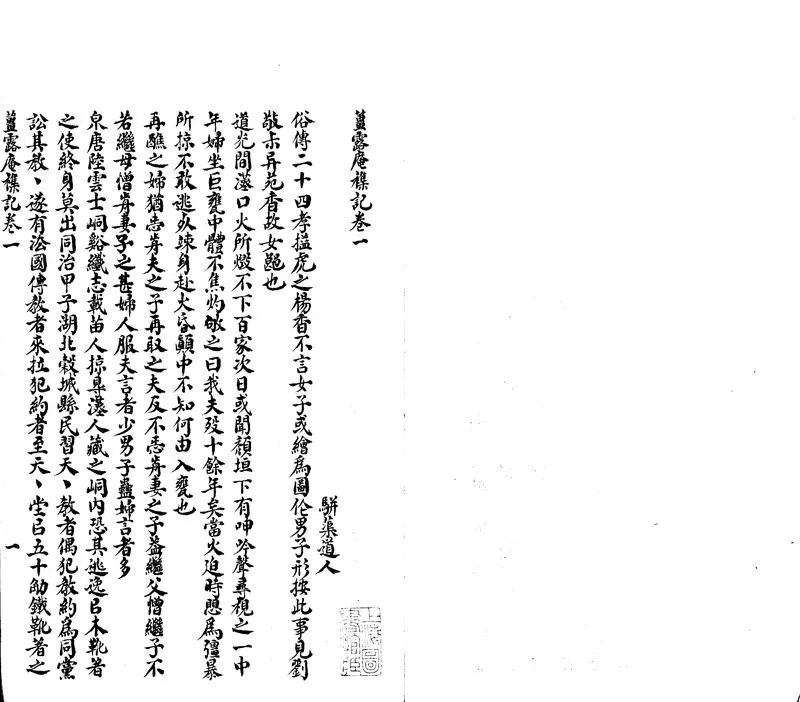 薑露庵襍記卷一
駢蕖道人
俗傳二十四孝搤虎之楊香不言女子或繪為圖作男子形按此事見劉
敬叔异苑香故女䶌也
道光間漢口火所燬不下百家次日或聞頹垣下有呻吟聲尋視之一中
年婦坐巨甕中體不焦灼敂之曰我夫歿十餘年矣當火迫時懸為彊暴
所掠不敢逃亦竦身赴火昏顛中不知何由入甕也
再醮之婦猶恚前夫之子再取之夫反不恚前妻之子葢繼父憎繼子不
若繼母憎前妻子之甚婦人服夫言者少男子蠱婦言者多
泉唐陸雲士峒谿纖志載苗人掠尋漢人藏之峒內恐其逃逸㠯木靴著
之使終身莫出同治甲子湖北穀城縣民習天丶教者偶犯教約為同黨
訟其教丶遂有法國傳教者來拉犯約者至天丶堂㠯五十觔鐵靴著之
薑露庵襍記卷一
一